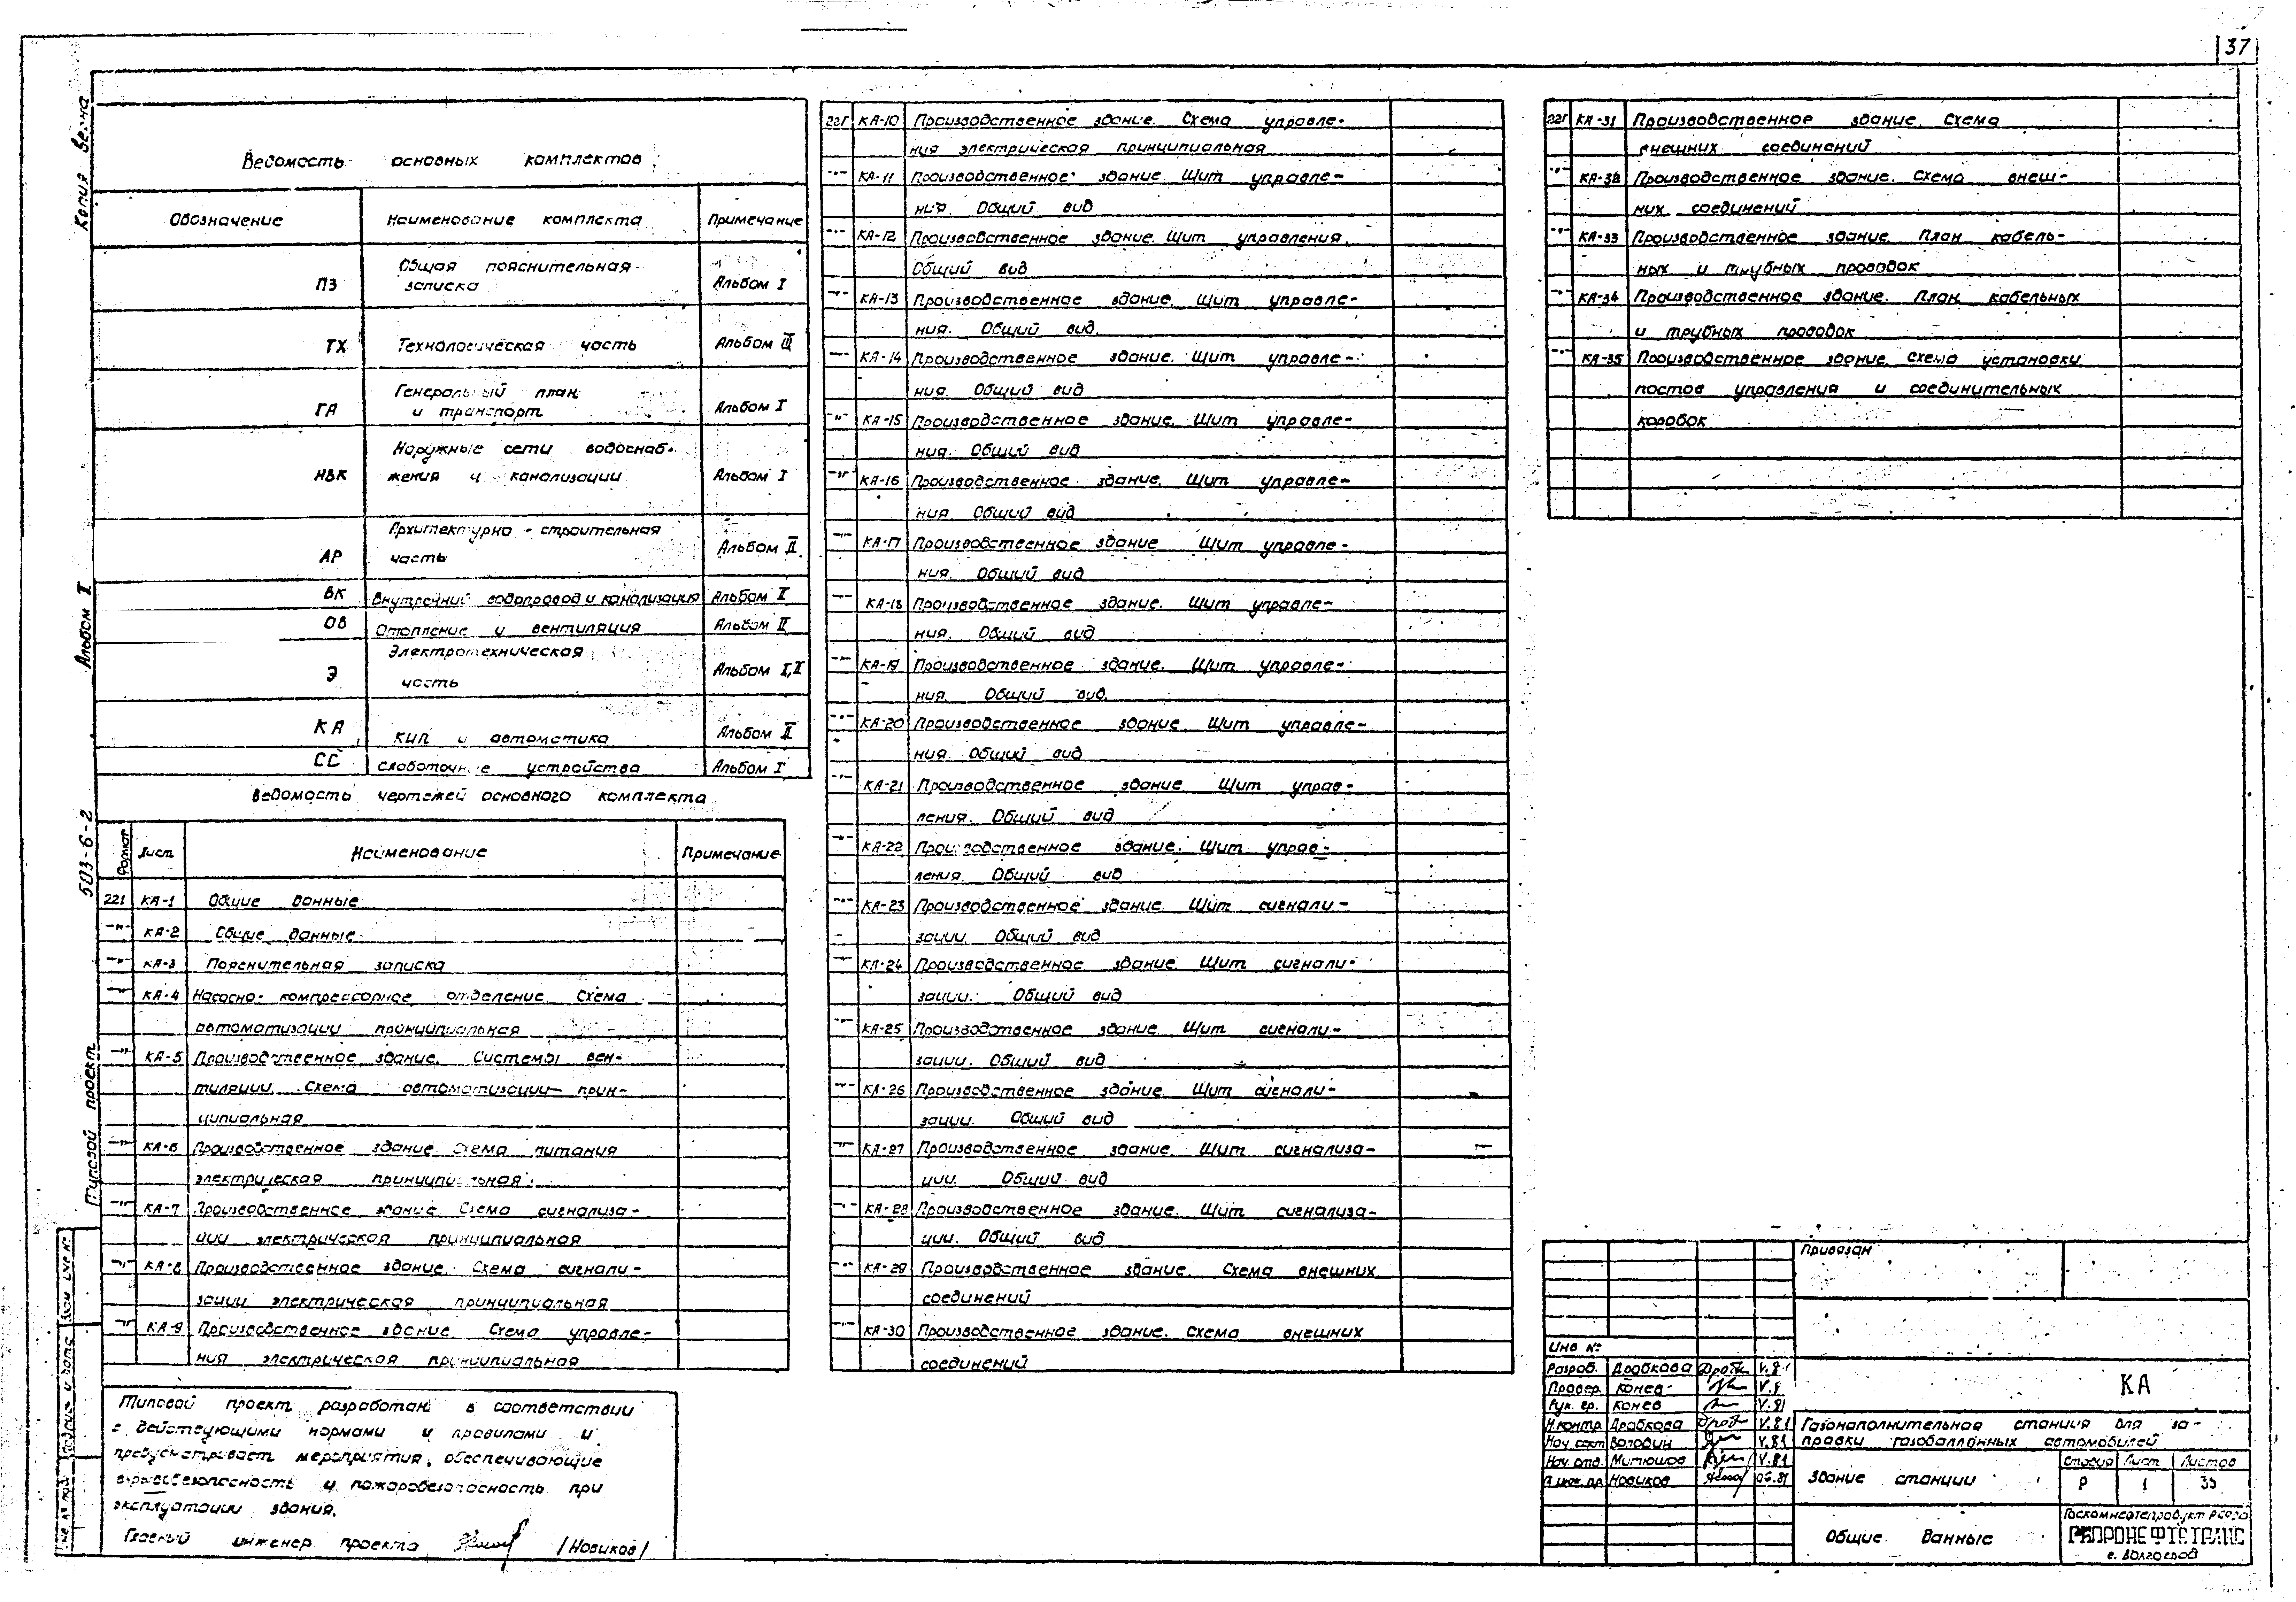 37
Копия верна
Альбом II
Типовой проект 503-6-2
Ведомость основных комплектов
Обозначение Наименование комплекта Примечание
ПЗ Общая пояснительная записка Альбом I
ТХ Технологическая часть Альбом III
Генеральный план и транспорт Альбом I
НВК Наружные сети водоснаб-
жения и канализации Альбом I
АР Архитектурно-строительная
часть Альбом II
ВК Внутренний водопровод и канализация Альбом II
ОВ Отопление и вентиляция Альбом II
Э Электротехническая
часть Альбом I,II
КА КИП и автоматика Альбом II
СС Слаботочные устройства Альбом I
Ведомость чертежей основного комплекта
Формат Лист Наименование Примечание
22г КА-1 Общие данные
—"— КА-2 Общие данные
—"— КА-3 Пояснительная записка
—"— КА-4 Насосно-компрессорное отделение. Схема
автоматизации принципиальная
—"— КА-5 Производственное здание. Системы вен-
тиляции. Схема автоматизации прин-
ципиальная
—"— КА-6 Производственное здание. Схема питания
электрическая принципиальная
—"— КА-7 Производственное здание. Схема сигнализа-
ции электрическая принципиальная
—"— КА-8 Производственное здание. Схема сигнали-
зации электрическая принципиальная
—"— КА-9 Производственное здание. Схема управле-
ния электрическая принципиальная
22г КА-10 Производственное здание. Схема управле-
ния электрическая принципиальная
—"— КА-11 Производственное здание. Щит управле-
ния. Общий вид
—"— КА-12 Производственное здание. Щит управления.
Общий вид
—"— КА-13 Производственное здание. Щит управле-
ния. Общий вид.
—"— КА-14 Производственное здание. Щит управле-
ния. Общий вид
—"— КА-15 Производственное здание. Щит управле-
ния. Общий вид
—"— КА-16 Производственное здание. Щит управле-
ния. Общий вид
—"— КА-17 Производственное здание Щит управле-
ния. Общий вид
—"— КА-18 Производственное здание. Щит управле-
ния. Общий вид
—"— КА-19 Производственное здание. Щит управле-
ния. Общий вид.
—"— КА-20 Производственное здание. Щит управле-
ния. Общий вид
—"— КА-21 Производственное здание Щит управ-
ления. Общий вид
—"— КА-22 Производственное здание. Щит управ-
ления. Общий вид
—"— КА-23 Производственное здание. Щит сигнали-
зации. Общий вид
—"— КА-24 Производственное здание. Щит сигнали-
зации. Общий вид
—"— КА-25 Производственное здание. Щит сигнали-
зации. Общий вид
—"— КА-26 Производственное здание. Щит сигнали-
зации. Общий вид
—"— КА-27 Производственное здание. Щит сигнализа-
ции. Общий вид
—"— КА-28 Производственное здание. Щит сигнализа-
ции. Общий вид
—"— КА-29 Производственное здание. Схема внешних
соединений
—"— КА-30 Производственное здание. Схема внешних
соединений
22г КА-31 Производственное здание. Схема
внешних соединений
—"— КА-32 Производственное здание. Схема внеш-
них соединений
—"— КА-33 Производственное здание. План кабель-
ных и трубных проводок
—"— КА-34 Производственное здание. План кабельных
и трубных проводок
—"— КА-35 Производственное здание. Схема установки
постов управления и соединительных
коробок
Типовой проект разработан в соответствии
с действующими нормами и правилами и
предусматривает мероприятия, обеспечивающие
взрывобезопасность и пожаробезопасность при
эксплуатации здания.
Главный инженер проекта /Новиков/
Привязан
Инв №
Разраб. Драбкова V.81
Провер. Конев
Рук. гр. Конев V.81
Н.контр. Драбкова V.81
Нач сект Володин V.81
Нач. отд. Митюшов V.81
Новиков 06.81
КА
Газонаполнительная станция для за-
правки газобаллонных автомобилей
Здание станции
Стадия Лист Листов
Р 1 35
Общие данные
Госкомнефтепродукт РСФСР
ГИПРОНЕФТЕТРАНС
г. Волгоград
Инв. № подл. Подпись и дата Взам инв №